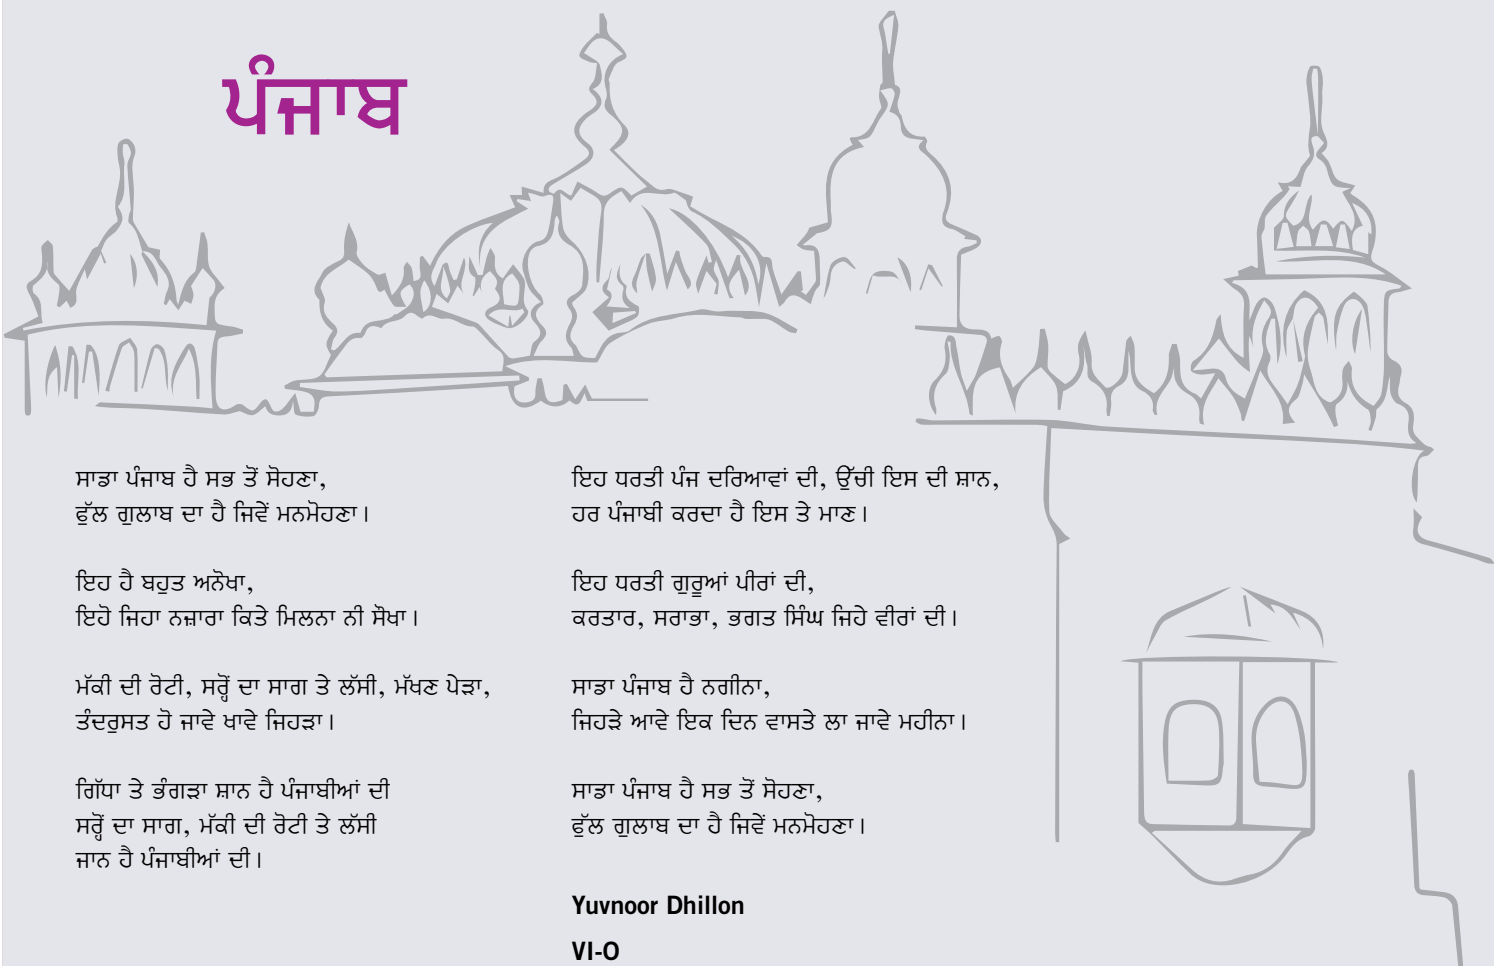 ਪੰਜਾਬ
ਸਾਡਾ ਪੰਜਾਬ ਹੈ ਸਭ ਤੋਂ ਸੋਹਣਾ,
ਫੁੱਲ ਗੁਲਾਬ ਦਾ ਹੈ ਜਿਵੇਂ ਮਨਮੋਹਣਾ।
ਇਹ ਹੈ ਬਹੁਤ ਅਨੋਖਾ,
ਇਹੋ ਜਿਹਾ ਨਜ਼ਾਰਾ ਕਿਤੇ ਮਿਲਨਾ ਨੀ ਸੌਖਾ।
ਮੱਕੀ ਦੀ ਰੋਟੀ, ਸਰ੍ਹੋਂ ਦਾ ਸਾਗ ਤੇ ਲੱਸੀ, ਮੱਖਣ ਪੇੜਾ,
ਤੰਦਰੁਸਤ ਹੋ ਜਾਵੇ ਖਾਵੇ ਜਿਹੜਾ।
ਗਿੱਧਾ ਤੇ ਭੰਗੜਾ ਸ਼ਾਨ ਹੈ ਪੰਜਾਬੀਆਂ ਦੀ
ਸਰ੍ਹੋਂ ਦਾ ਸਾਗ, ਮੱਕੀ ਦੀ ਰੋਟੀ ਤੇ ਲੱਸੀ
ਜਾਨ ਹੈ ਪੰਜਾਬੀਆਂ ਦੀ।
ਇਹ ਧਰਤੀ ਪੰਜ ਦਰਿਆਵਾਂ ਦੀ, ਉੱਚੀ ਇਸ ਦੀ ਸ਼ਾਨ,
ਹਰ ਪੰਜਾਬੀ ਕਰਦਾ ਹੈ ਇਸ ਤੇ ਮਾਣ।
ਇਹ ਧਰਤੀ ਗੁਰੂਆਂ ਪੀਰਾਂ ਦੀ,
ਕਰਤਾਰ, ਸਰਾਭਾ, ਭਗਤ ਸਿੰਘ ਜਿਹੇ ਵੀਰਾਂ ਦੀ।
ਸਾਡਾ ਪੰਜਾਬ ਹੈ ਨਗੀਨਾ,
ਜਿਹੜੇ ਆਵੇ ਇਕ ਦਿਨ ਵਾਸਤੇ ਲਾ ਜਾਵੇ ਮਹੀਨਾ।
ਸਾਡਾ ਪੰਜਾਬ ਹੈ ਸਭ ਤੋਂ ਸੋਹਣਾ,
ਫੁੱਲ ਗੁਲਾਬ ਦਾ ਹੈ ਜਿਵੇਂ ਮਨਮੋਹਣਾ।
Yuvnoor Dhillon
VI-O